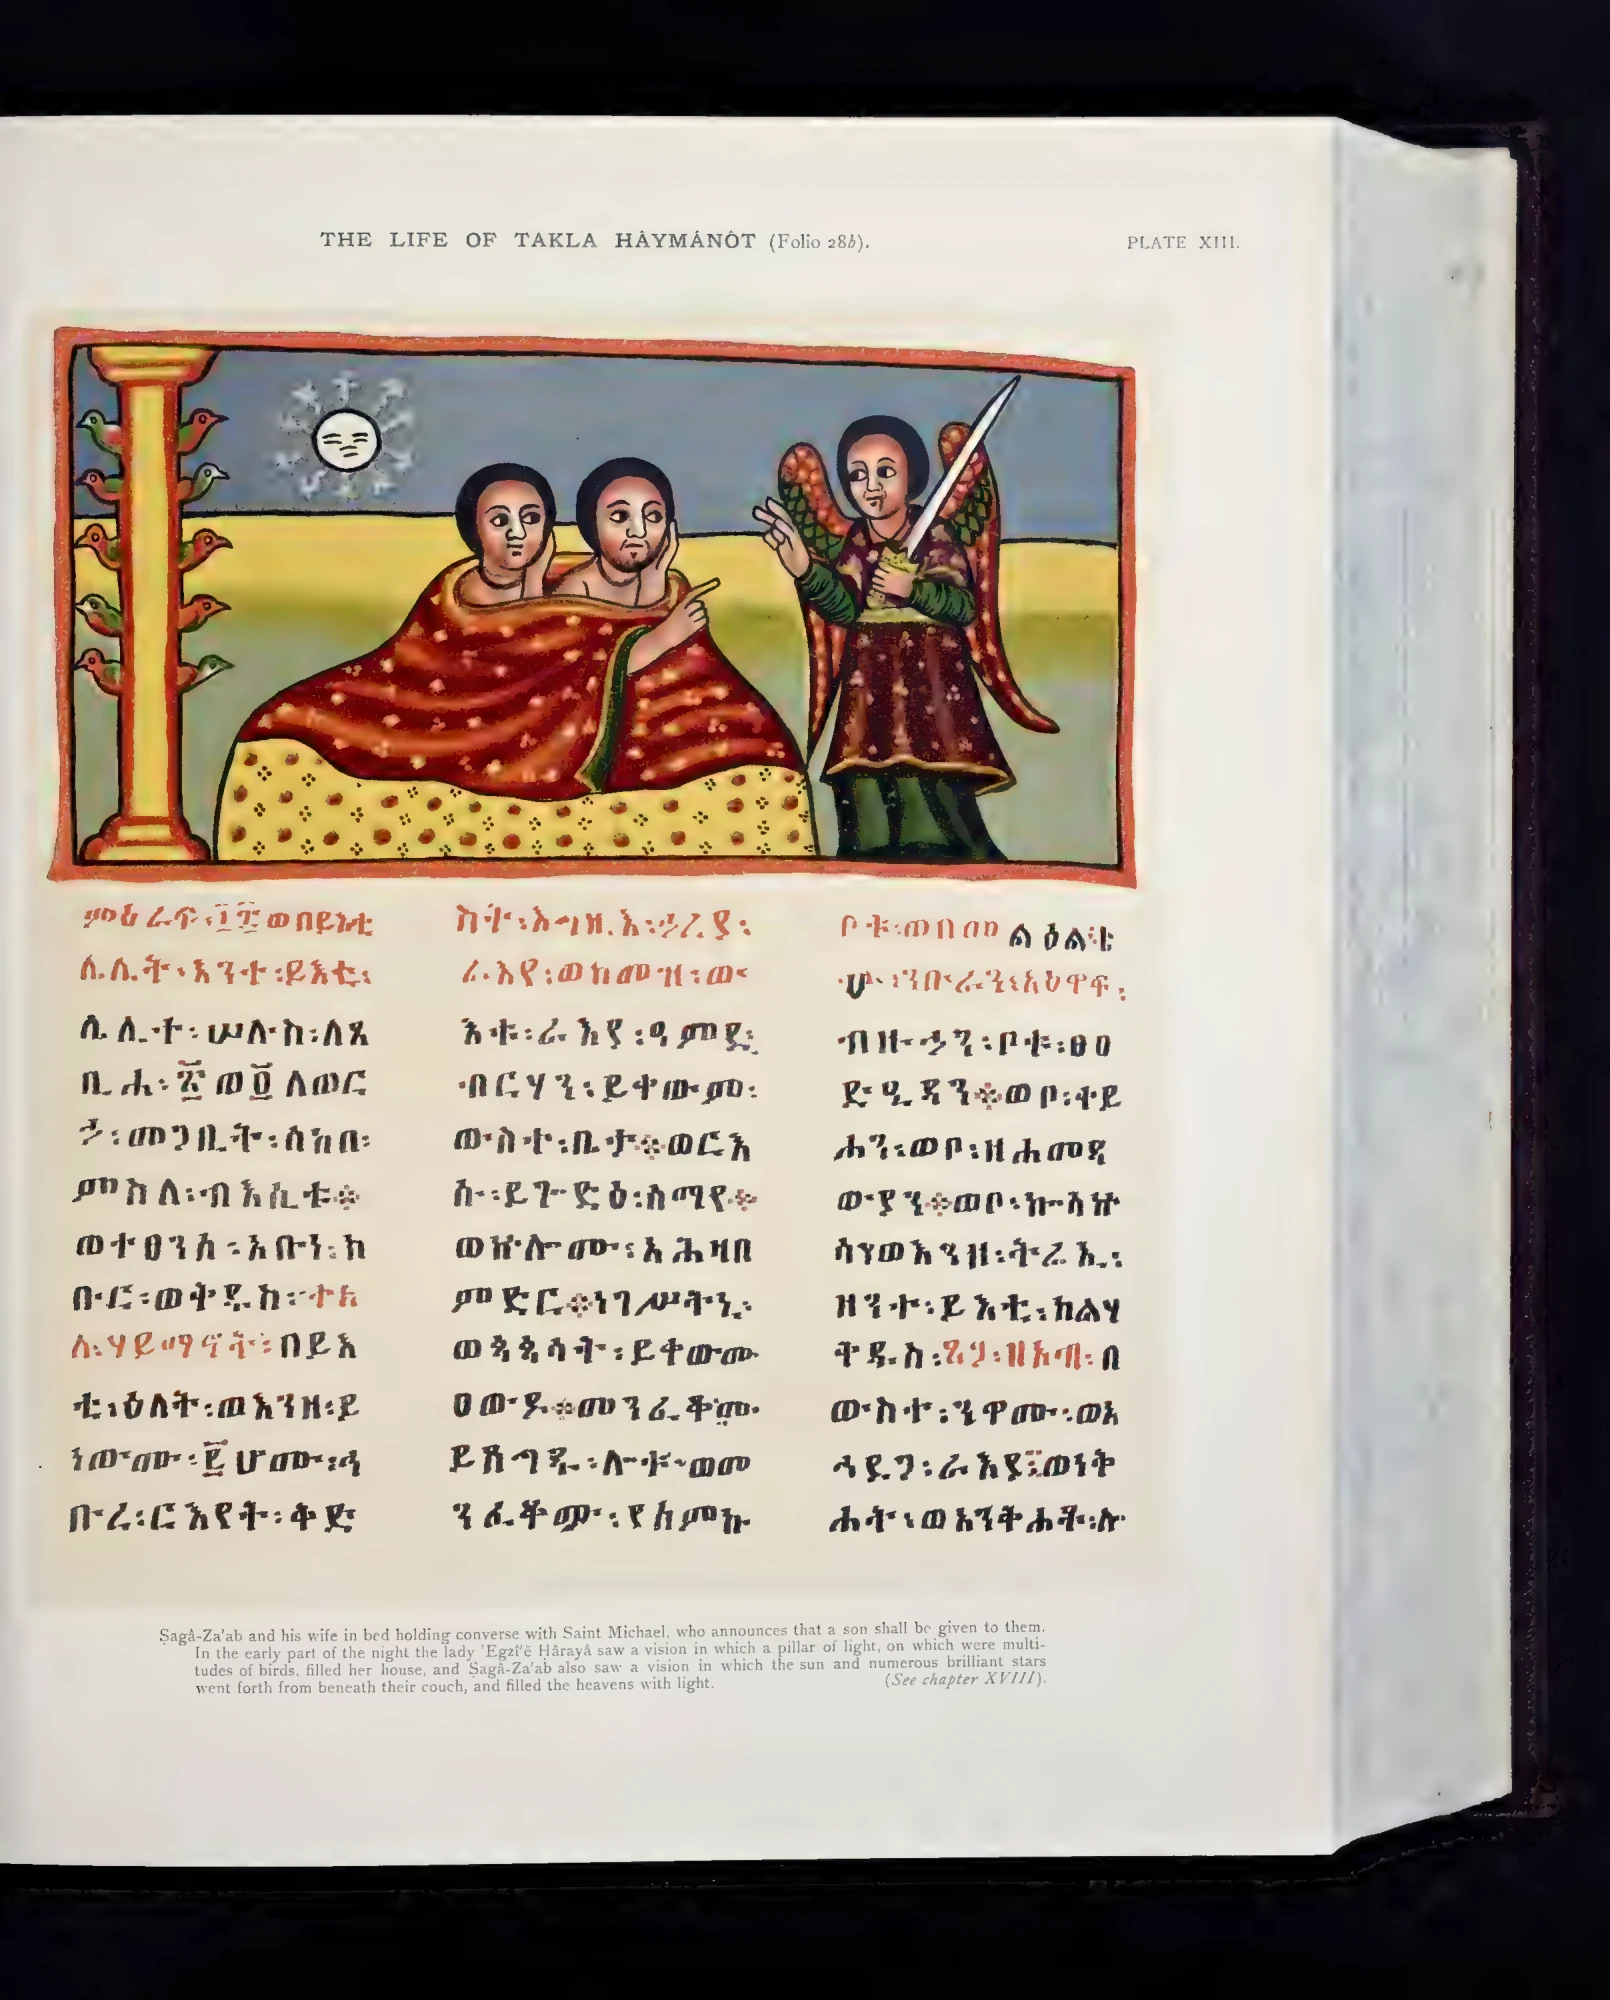 THE LIFE OF TAKLA HÂYMÂNÔT (Folio 28b).
PLATE XIII.
ምዕራፍ፡፲፰ወበይእቲ
ሌሊት፡እንተ፡ይእቲ፡
ሌሊተ፡ሠሉስ፡ለጸ
ቢሐ፡፳ወ፬ለወር
ኃ፡መጋቢት፡ሰከበ፡
ምስለ፡ብእሲቱ።
ወተፀንሰ፡አቡነ፡ክ
ቡር፡ወቅዱስ፡ተክ
ለ፡ሃይማኖት፡በይእ
ቲ፡ዕለት፡ወእንዘ፡ይ
ነውሙ፡፪ሆሙ፡ኃ
ቡረ፡ርእየት፡ቅድ
ስት፡እግዚእ፡ኃረያ፡
ራእየ፡ወከመዝ፡ው
እቱ፡ራእያ፡ዓምደ፡
ብርሃን፡ይቀውም፡
ውስተ፡ቤታ።ወርእ
ሱ፡ይጐድዕ፡ሰማየ።
ወኵሎሙ፡አሕዛበ
ምድር።ነገሥትኒ፡
ወጳጳሳት፡ይቀውሙ
ዐውዶ።መንፈቆሙ
ይሰግዱ፡ሎቱ፡ወመ
ንፈቆሙ፡የአምኁ
ቦቱ፡ወበመልዕልቴ
ሁ፡ንቡራን፡አዕዋፍ፡
ብዙኃን፡ቦቱ፡ፀዐ
ድዒዳን።ወቦ፡ቀይ
ሐን፡ወቦ፡ዘሐመዳ
ውያን።ወቦ፡ኵሳኵ
ስየወእንዘ፡ትሬኢ፡
ዘንተ፡ይእቲ፡ከልሃ
ቅዱስ፡ጸጋ፡ዘአብ፡በ
ውስተ፡ንዋሙ፡ወእ
ኃዲጋ፡ራእያ፡ወነቅ
ሐት፡ወአንቅሐቶ፡ሎ
Ṣagâ-Za'ab and his wife in bed holding converse with Saint Michael, who announces that a son shall be given to them.
In the early part of the night the lady 'Egzî'ĕ Hârayâ saw a vision in which a pillar of light, on which were multi-
tudes of birds, filled her house, and Ṣagâ-Za'ab also saw a vision in which the sun and numerous brilliant stars
went forth from beneath their couch, and filled the heavens with light. (See chapter XVIII).